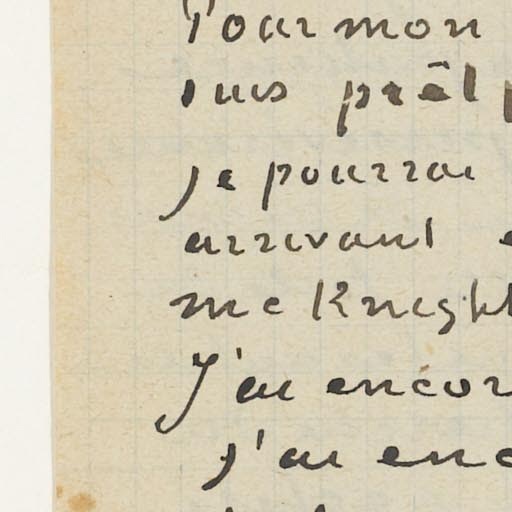 Pour mon
suis prêt
je pourrai
arrivant
mc Knight
J'ai encor
j'ai enc